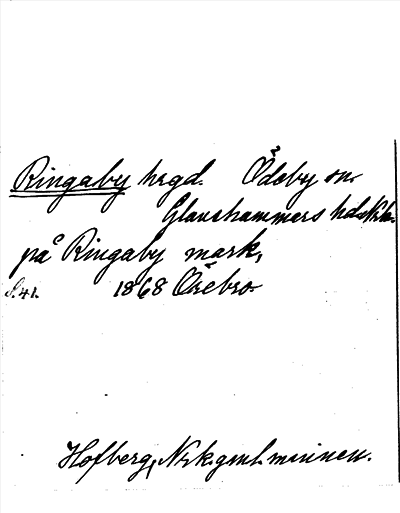 Ringaby hrgd. Ödeby sn.
Glanshammars hd Nrk.
på Ringaby mark,
S. 41. 1868 Örebro
Hofberg, Nrk. gml. minnen.